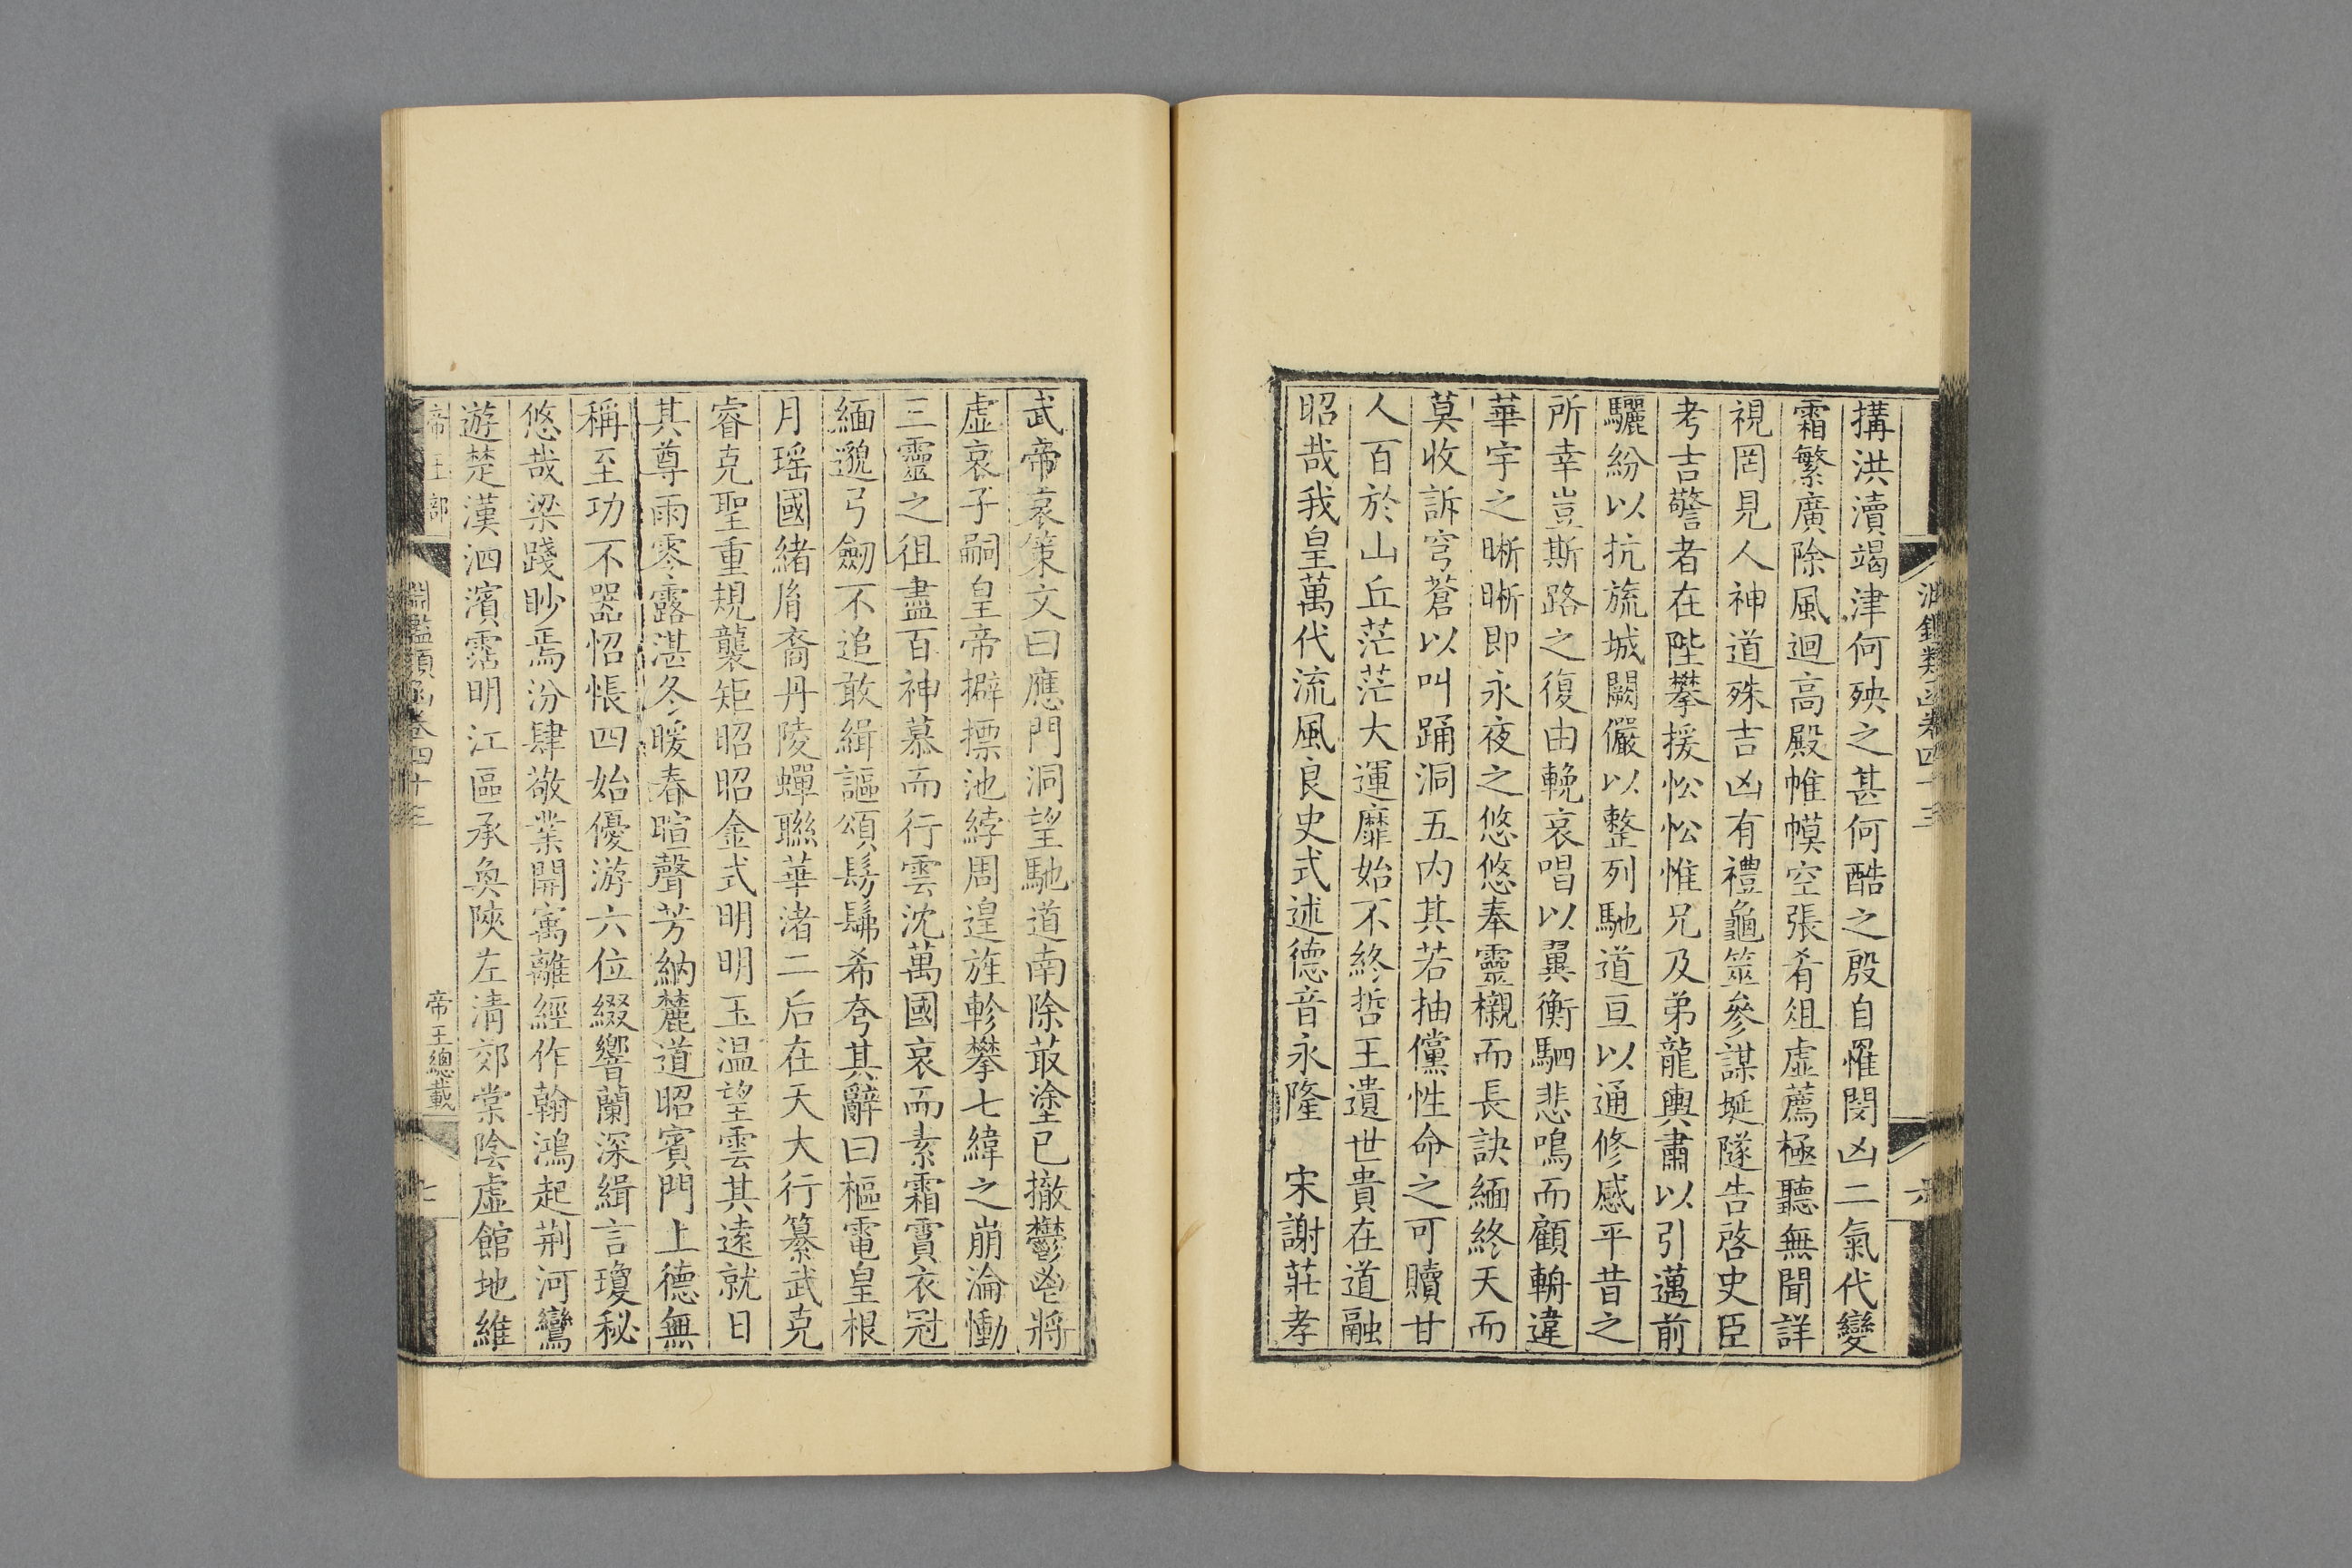 搆洪瀆竭津何殃之甚何酷之殷自罹閔凶二氣代變
霜繁廣除風迴高殿帷幙空張肴俎虛薦極聽無聞詳
視罔見人神道殊吉凶有禮龜筮參謀埏隧告啓史臣
考吉警者在陛攀援忪忪惟兄及弟龍輿肅以引邁前
驪紛以抗旒城闕儼以整列馳道亘以通修感平昔之
所幸豈斯路之復由輓哀唱以翼衡駟悲鳴而顧輈違
華宇之晰晰即永夜之悠悠奉靈櫬而長訣緬終天而
莫收訴穹蒼以叫踊洞五内其若抽儻性命之可贖甘
人百於山丘茫茫大運靡始不終哲王遺世貴在道融
昭哉我皇萬代流風良史式述德音永隆　宋謝莊孝
武帝哀策文曰應門洞望馳道南除菆塗已撤鬱鬯將
虛哀子嗣皇帝擗摽池綍周遑旌軫攀七緯之崩淪慟
三靈之徂盡百神慕而行雲沈萬國哀而素霜賈衣冠
緬邈弓劒不追敢緝謳頌髣髴希夸其辭曰樞電皇根
月瑤國緒胤裔丹陵蟬聯華渚二后在天大行纂武克
睿克聖重規襲矩昭昭金式明明玉温望雲其遠就日
其尊雨零露湛冬暖春暄聲芳納麓道昭賓門上德無
稱至功不器怊悵四始優游六位綴響蘭深緝言瓊秘
悠哉梁踐眇焉汾肆敬業開寓離經作翰鴻起荆河鸞
遊楚漢泗濱霑明江區承奐陝左清郊棠陰虛館地維
帝王部
淵鑑類函卷四十三
帝王總載
七